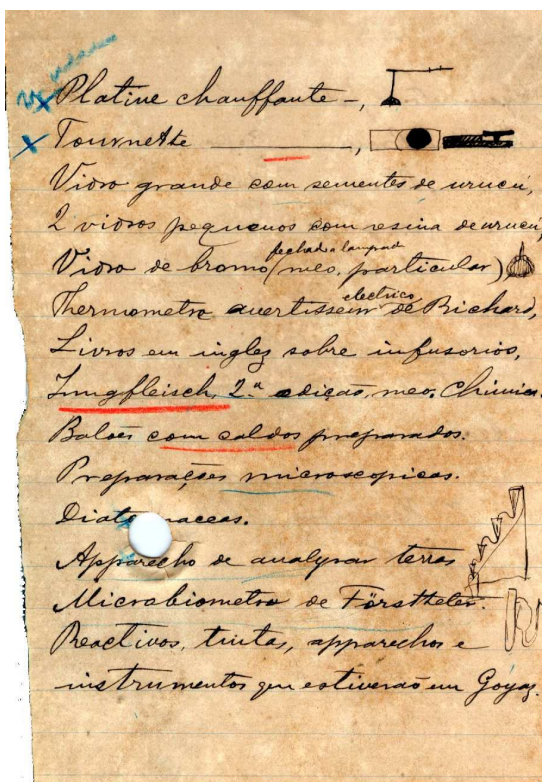 Platine chauffante -,
Tournette ,
Vidro grande com sementes de urucú,
2 vidros pequenos com resina de urucú,
fechado a lampada
Vidro de bromo (meo, particular)
electrico
Thermometro avertisseur de Richard,
Livros em inglez sobre infusorios,
Jungfleisch, 2.ª edição, meo. Chimica.
Balões com caldos preparados.
Preparações microscopicas.
Diatomaceas.
Apparelho de analysar terras
Microbiometro de
Reactivos, tintas, apparelhos e
instrumentos que estiverão em Goyaz.